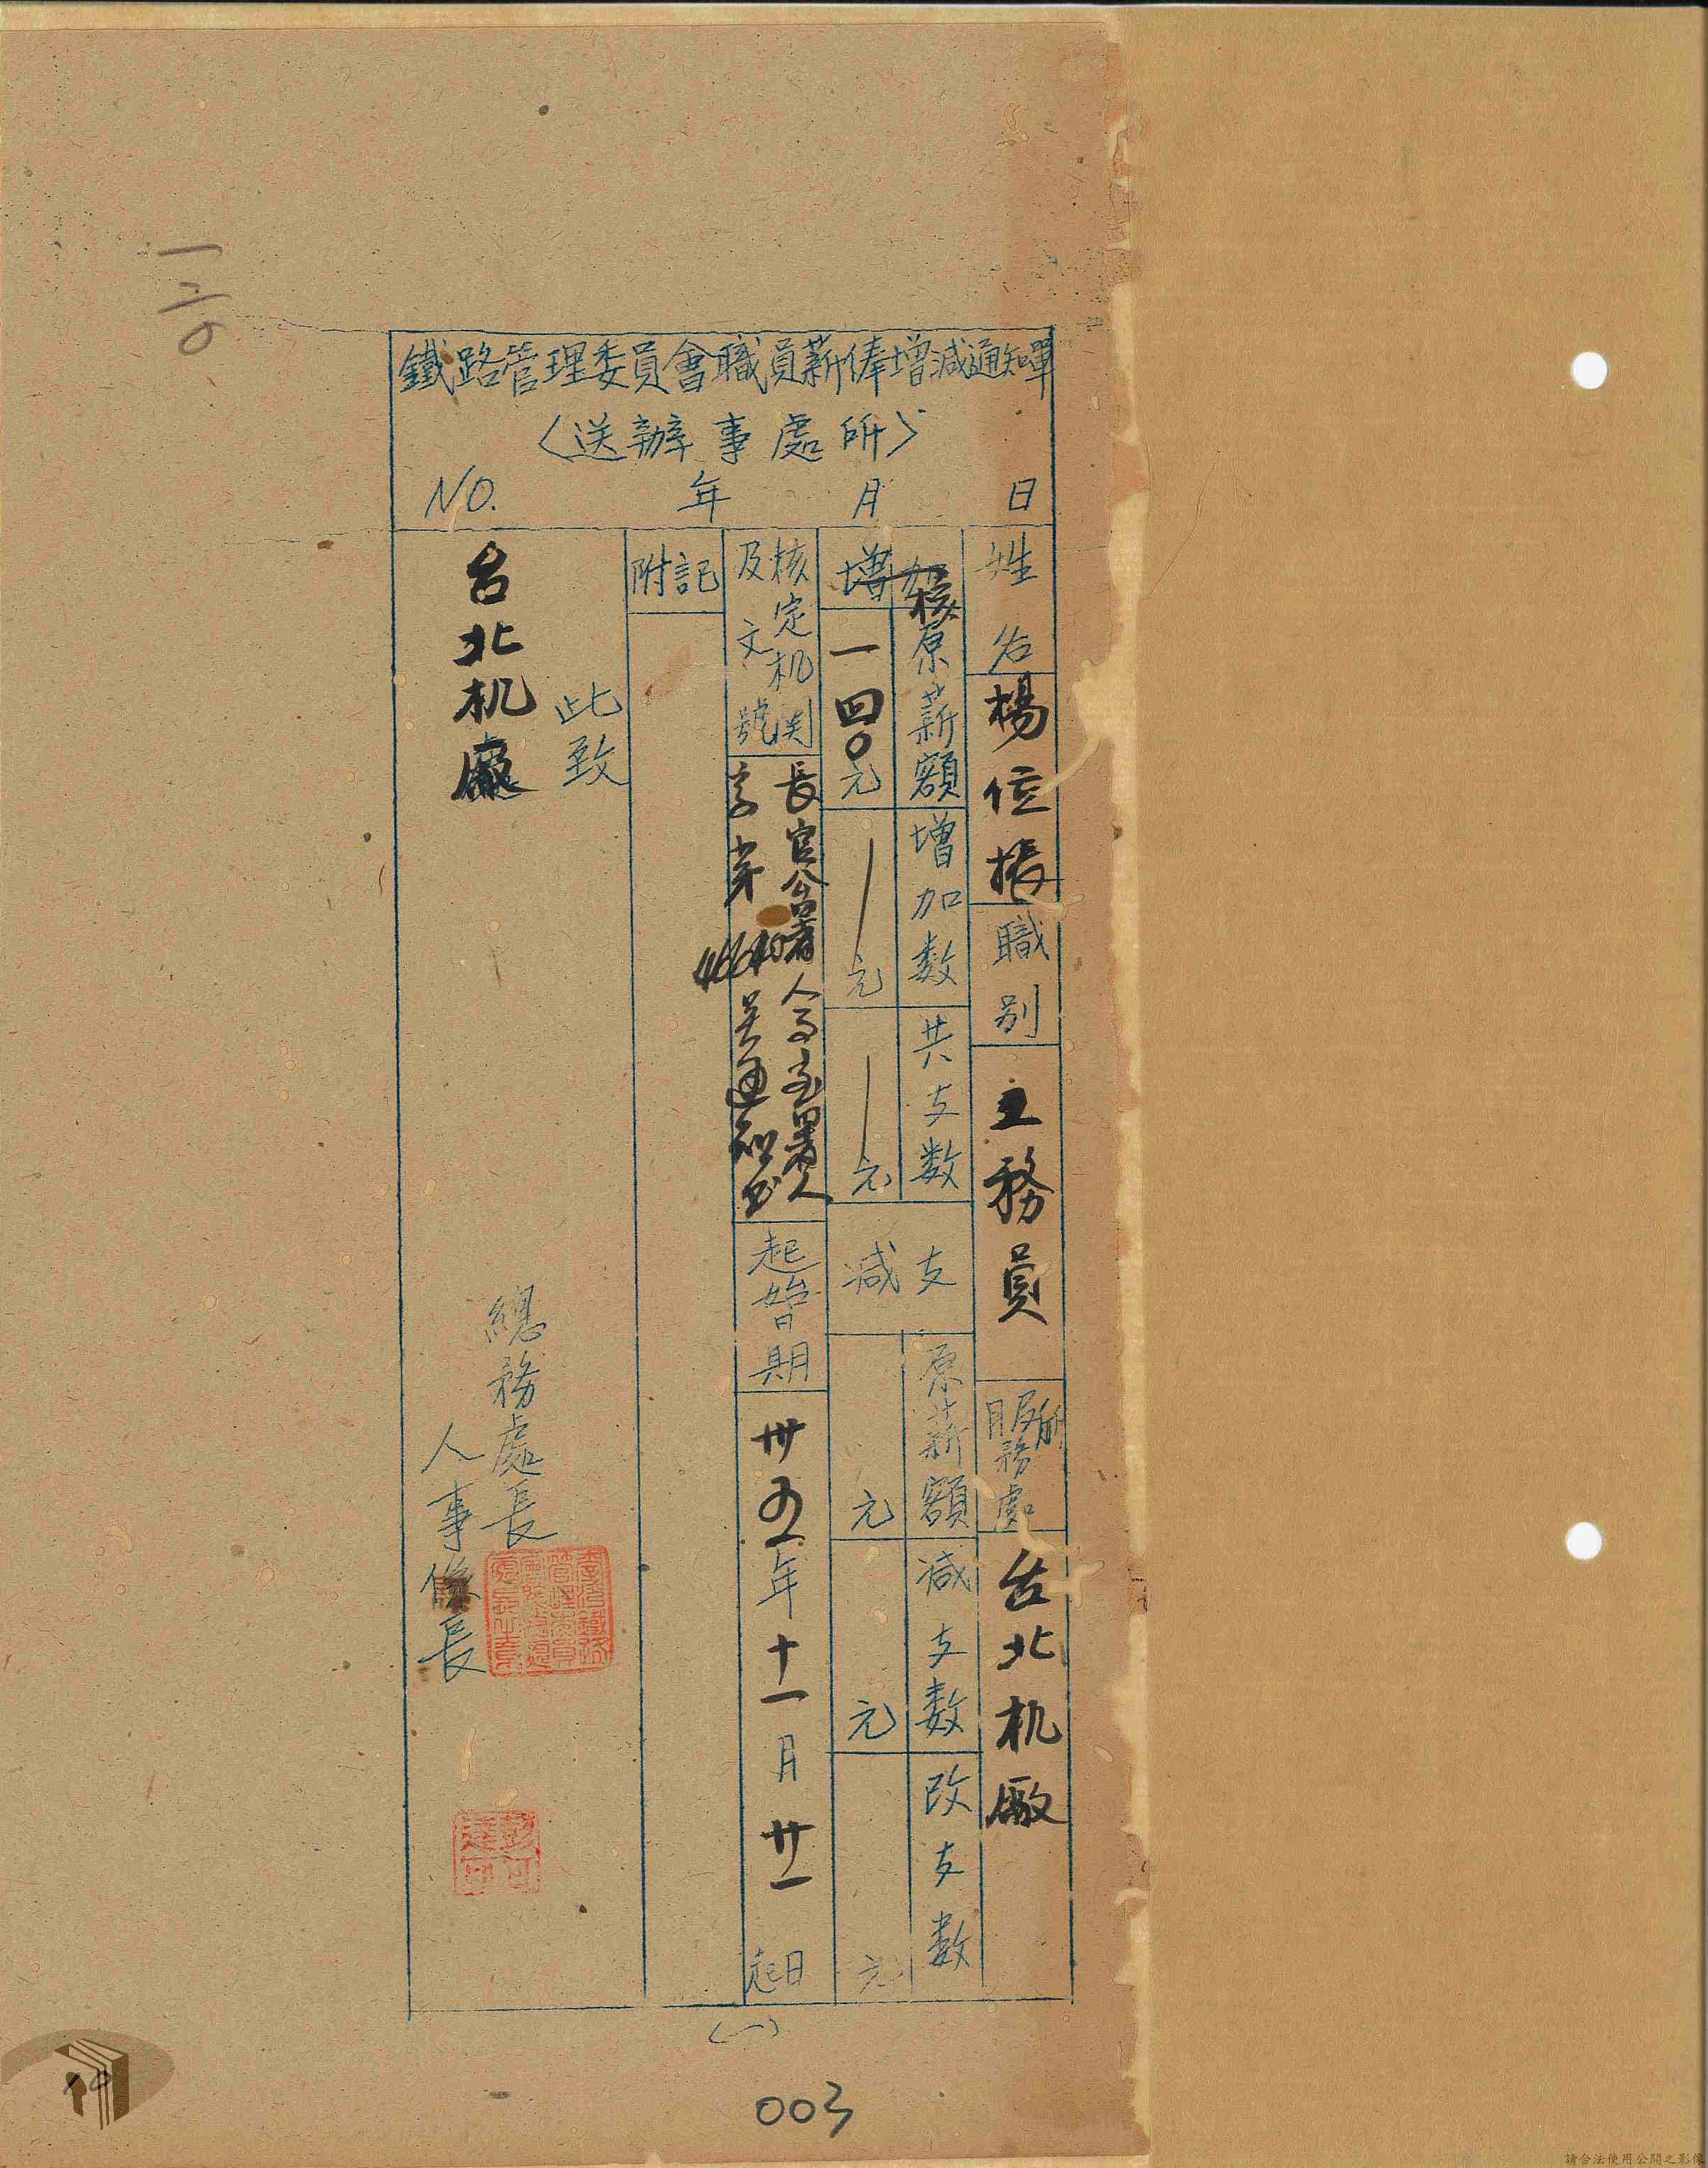 鐵路管理委員會職員薪俸增減通知單
(送辦事處所)
NO. 年 月 日
姓名 楊位振 職別 主務員 服務處所 台北机廠
增加 核
原薪額 增加數 共支數
一四〇元 元 元
減支
原薪額 減支數 改支數
元 元 元
核定机関及文號
長官公署人
字第
通知書
起始日期
卅四年十一月廿一日起
附記
此致
台北机廠
總務處長
人事係長
(一)
003
一二〇
請合法使用公開之影像